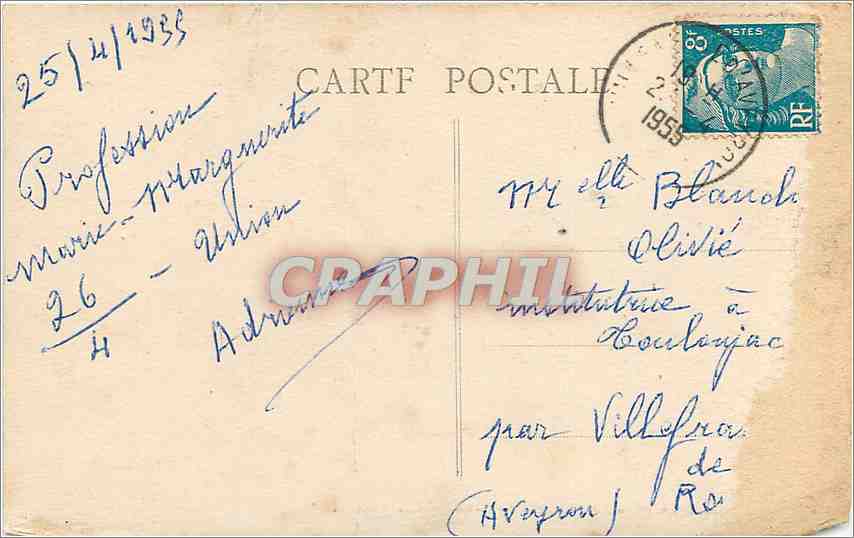 25/4/1955
CARTE POSTALE
8F POSTES
RF
1955
Profession
Marie-Marguerite
26/4 - Union
Adrienne
CRAPHIL
Melle Blanch
Olivié
institutrice à
Toulonjac
par Villefra
de
Ro
(Aveyron)